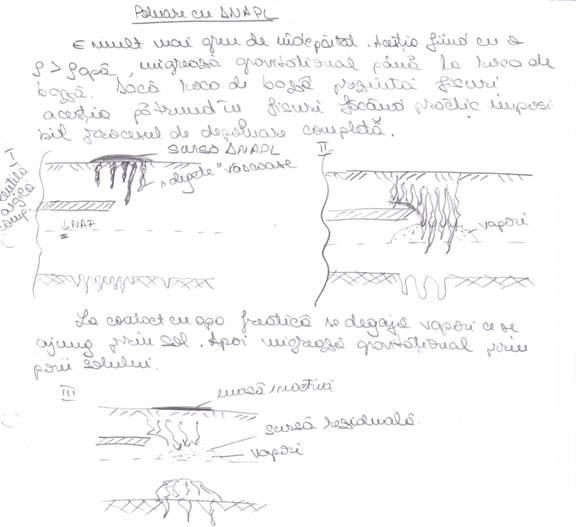 Poluare cu DNAPL
E mult mai greu de îndepărtat. Aceștia fiind cu o
ρ > ρapă, migrează gravitațional până la roca de
bază. Dacă roca de bază prezintă fisuri
aceștia pătrund în fisuri făcând practic imposi
bil procesul de depoluare completă.
I
sursă DNAPL
„degete" vâscoase
lentilă
argilă
comp.
NAF
II
vapori
La contact cu apa freatică se degajă vapori ce se
ajung prin sol. Apoi migrează gravitațional prin
porii solului.
III
masă inactivă
sursă reziduală
vapori